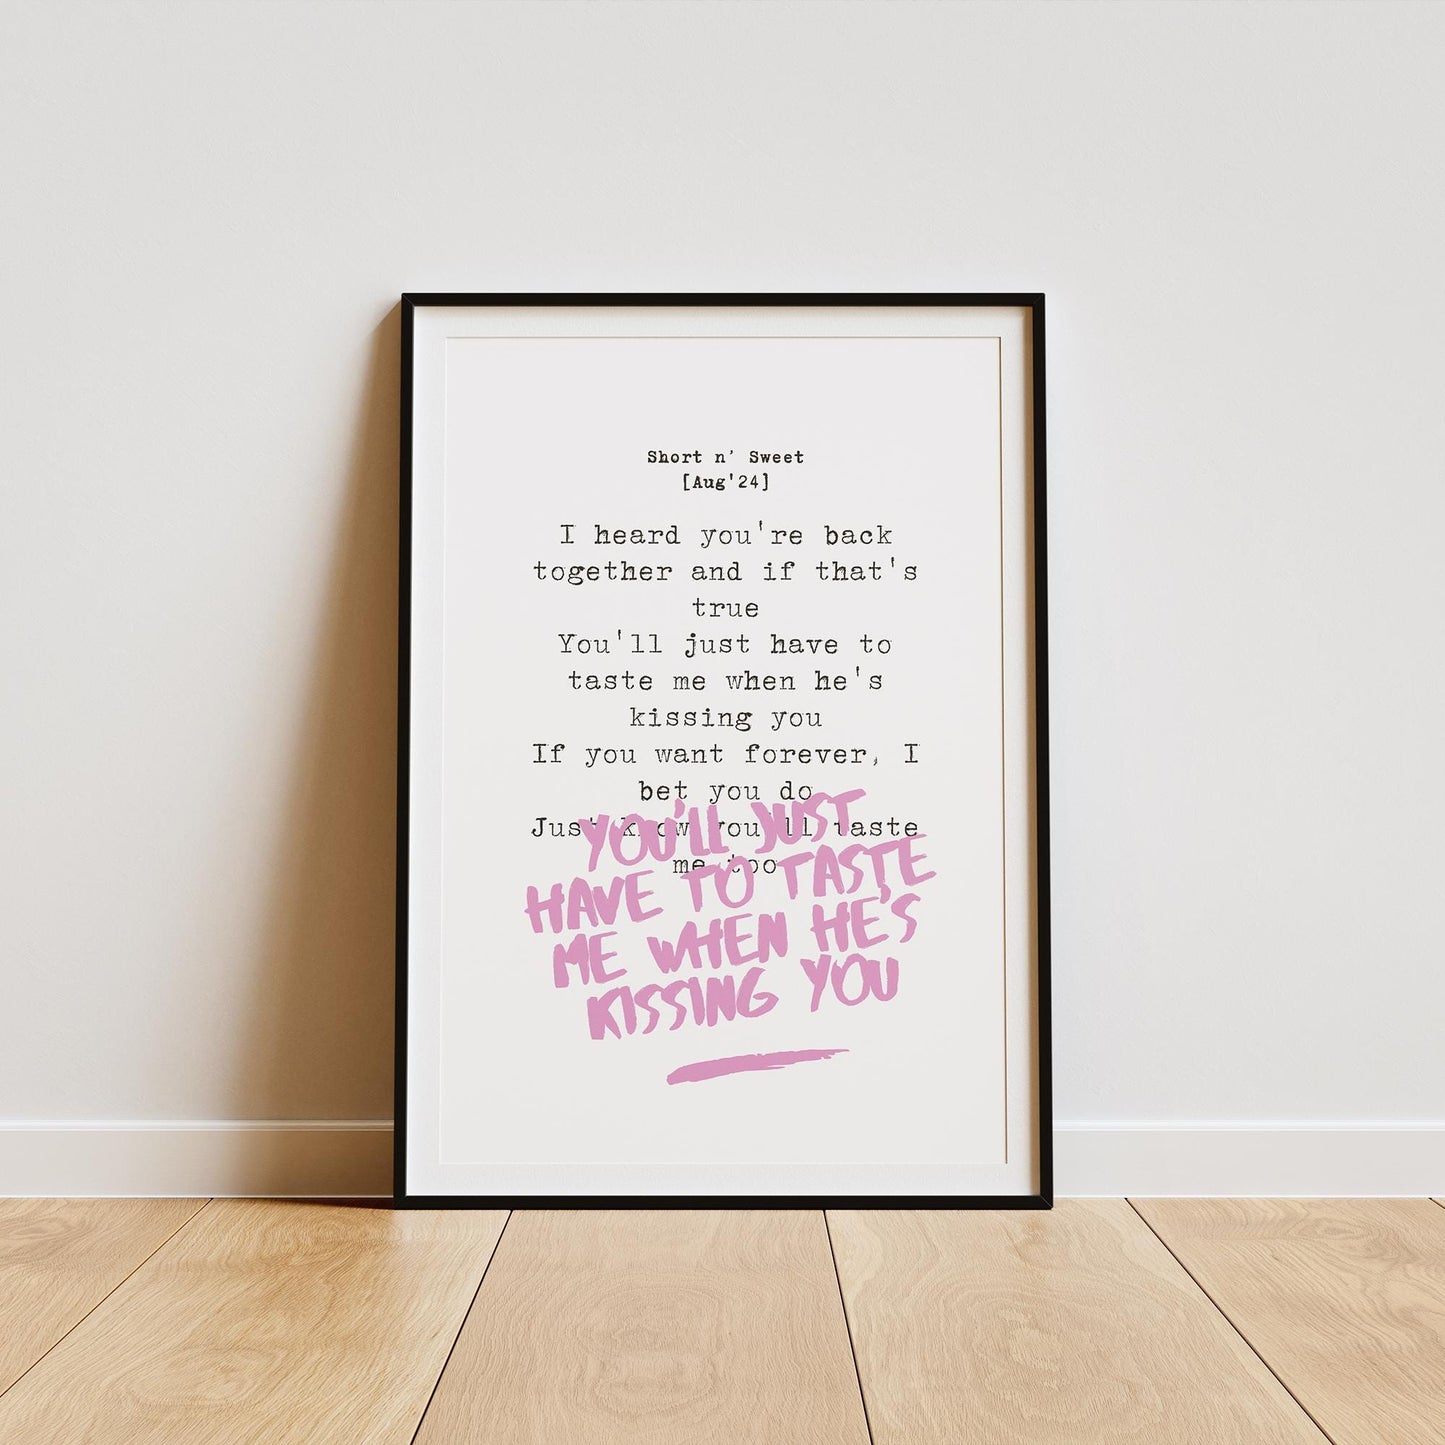 Short n' Sweet
[Aug'24]
I heard you're back
together and if that's
true
You'll just have to
taste me when he's
kissing you
If you want forever, I
bet you do
Just know you'll taste
me too
YOU'LL JUST
HAVE TO TASTE
ME WHEN HE'S
KISSING YOU